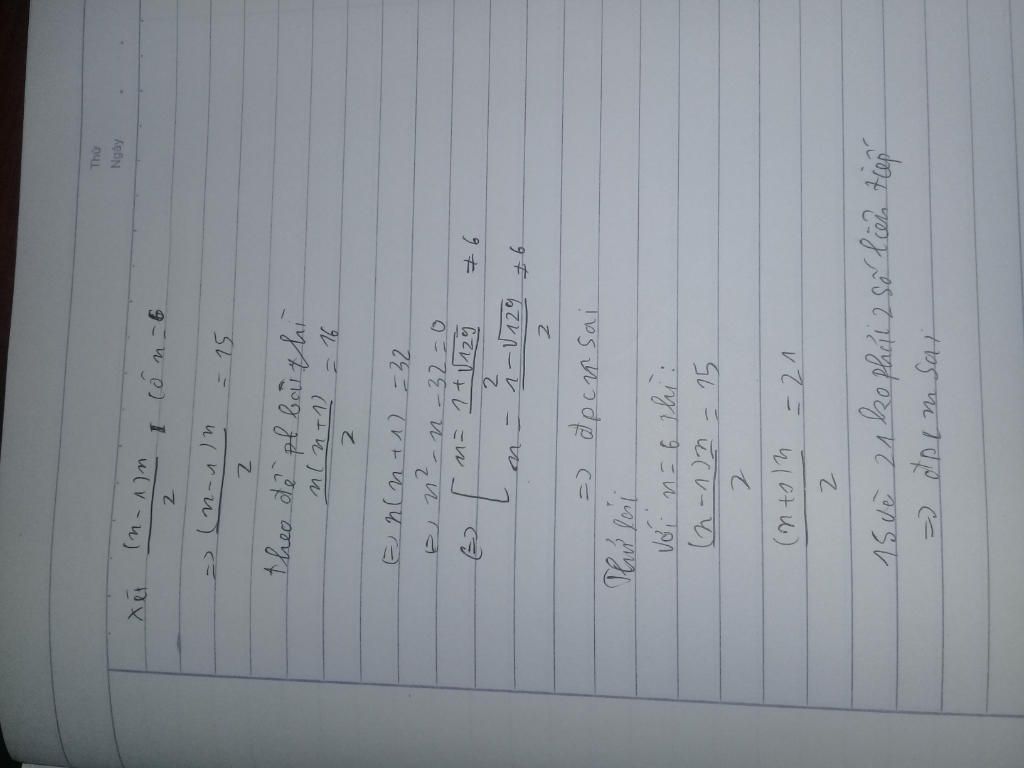 Thứ
Ngày
Xét (n-1)n/2 có n=6
=> (n-1)n/2 = 15
theo đề bài thì
n(n+1)/2 = 16
(=) n(n+1) = 32
(=) n² - n - 32 = 0
(=) [ n = 1+√129/2 ≠ 6
n = 1-√129/2 ≠ 6
=> đpcm sai
Thử lại
với n=6 thì:
(n-1)n/2 = 15
(n+1)n/2 = 21
15 và 21 ko phải 2 số liên tiếp
=> đpcm sai